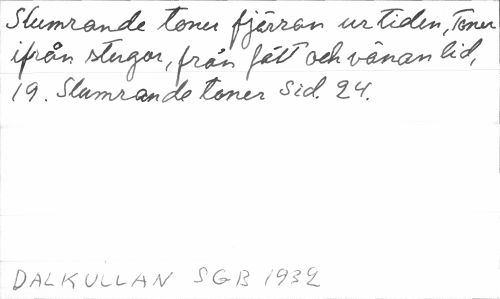 Slumrande toner fjärran ur tiden, Toner
ifrån stugor, från fält och vänan lid,
19. Slumrande toner Sid. 24.
DALKULLAN SGB 1932